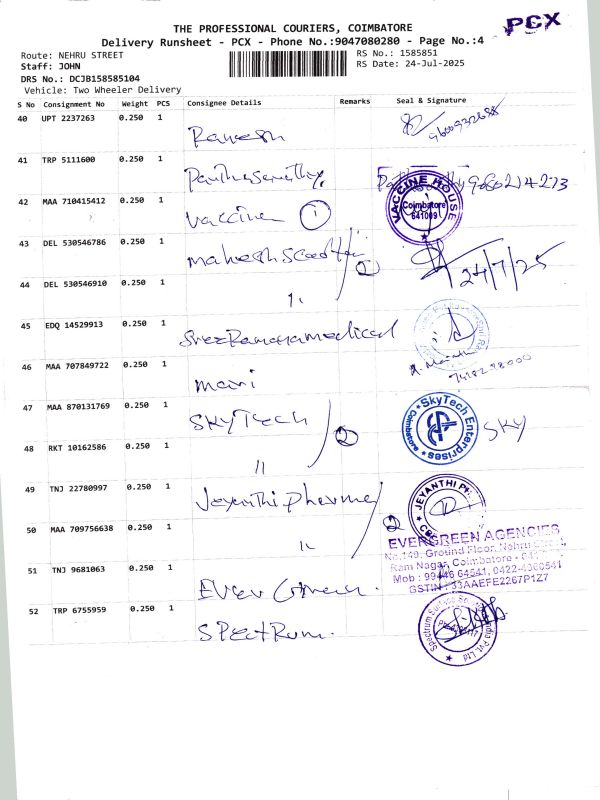 PCX
THE PROFESSIONAL COURIERS, COIMBATORE
Delivery Runsheet - PCX - Phone No.:9047080280 - Page No.:4
Route: NEHRU STREET
RS No.: 1585851
Staff: JOHN
RS Date: 24-Jul-2025
DRS No.: DCJB158585104
Vehicle: Two Wheeler Delivery
S No Consignment No Weight PCS Consignee Details Remarks Seal & Signature
40 UPT 2237263 0.250 1
Ramesh
41 TRP 5111600 0.250 1
Parthasarathy
42 MAA 710415412 0.250 1
Vaccine 1
VACCINE HOUSE
Coimbatore
641009
43 DEL 530546786 0.250 1
2
24/7/25
44 DEL 530546910 0.250 1
"
45 EDQ 14529913 0.250 1
46 MAA 707849722 0.250 1
mari
7418298000
47 MAA 870131769 0.250 1
SKYTECH 2
SkyTech Enterprises
Coimbatore
SKY
48 RKT 10162586 0.250 1
"
49 TNJ 22780997 0.250 1
Jeyanthi pharma
JEYANTHI
2
50 MAA 709756638 0.250 1
"
EVERGREEN AGENCIES
No.149, Ground Floor, Nehru
Ram Nagar, Coimbatore -
Mob : 99446 64541, 0422-4360541
GSTIN : 33AAEFE2267P1Z7
51 TNJ 9681063 0.250 1
Ever Green
52 TRP 6755959 0.250 1
Spectrum
Spectrum
India Pvt. Ltd